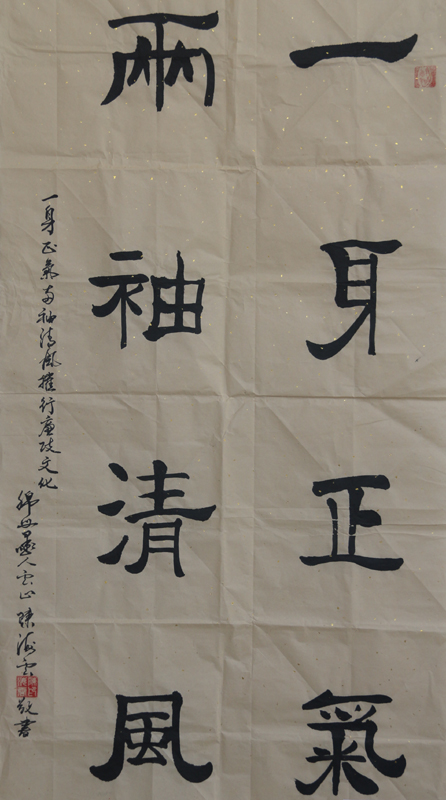 一身正氣
兩袖清風
一身正氣兩袖清風 推行廉政文化
綿 墨人 山 陳海雲 敬書